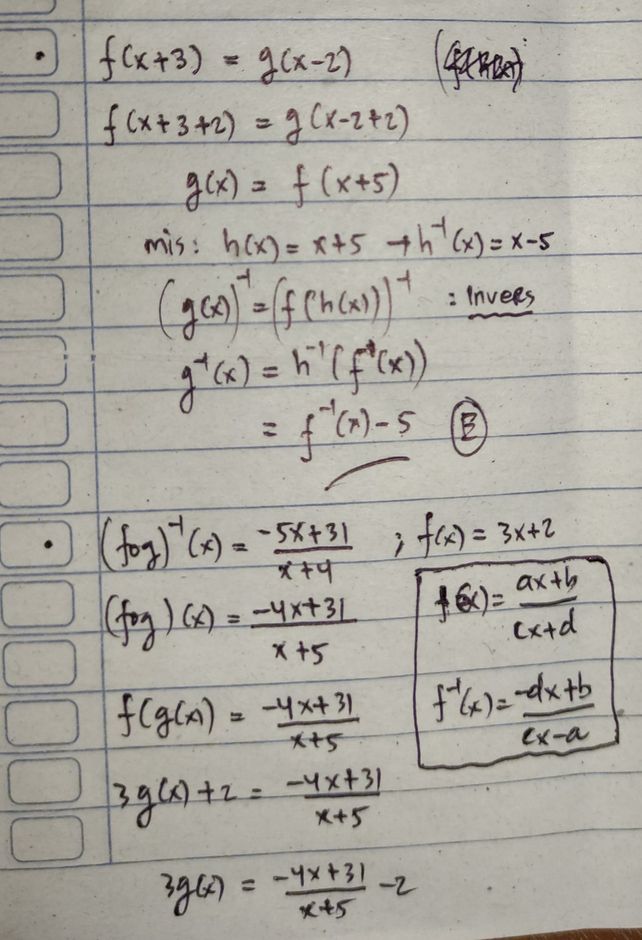 f(x+3) = g(x-2)
f(x+3+2) = g(x-2+2)
g(x) = f(x+5)
mis: h(x) = x+5 → h⁻¹(x) = x-5
(g(x))⁻¹ = (f(h(x)))⁻¹ : Invers
g⁻¹(x) = h⁻¹(f⁻¹(x))
= f⁻¹(x) - 5 Ⓔ
(fog)⁻¹(x) = (-5x+31)/(x+4) ; f(x) = 3x+2
f(x) = (ax+b)/(cx+d)
(fog)(x) = (-4x+31)/(x+5)
f⁻¹(x) = (-dx+b)/(cx-a)
f(g(x)) = (-4x+31)/(x+5)
3g(x)+2 = (-4x+31)/(x+5)
3g(x) = (-4x+31)/(x+5) - 2